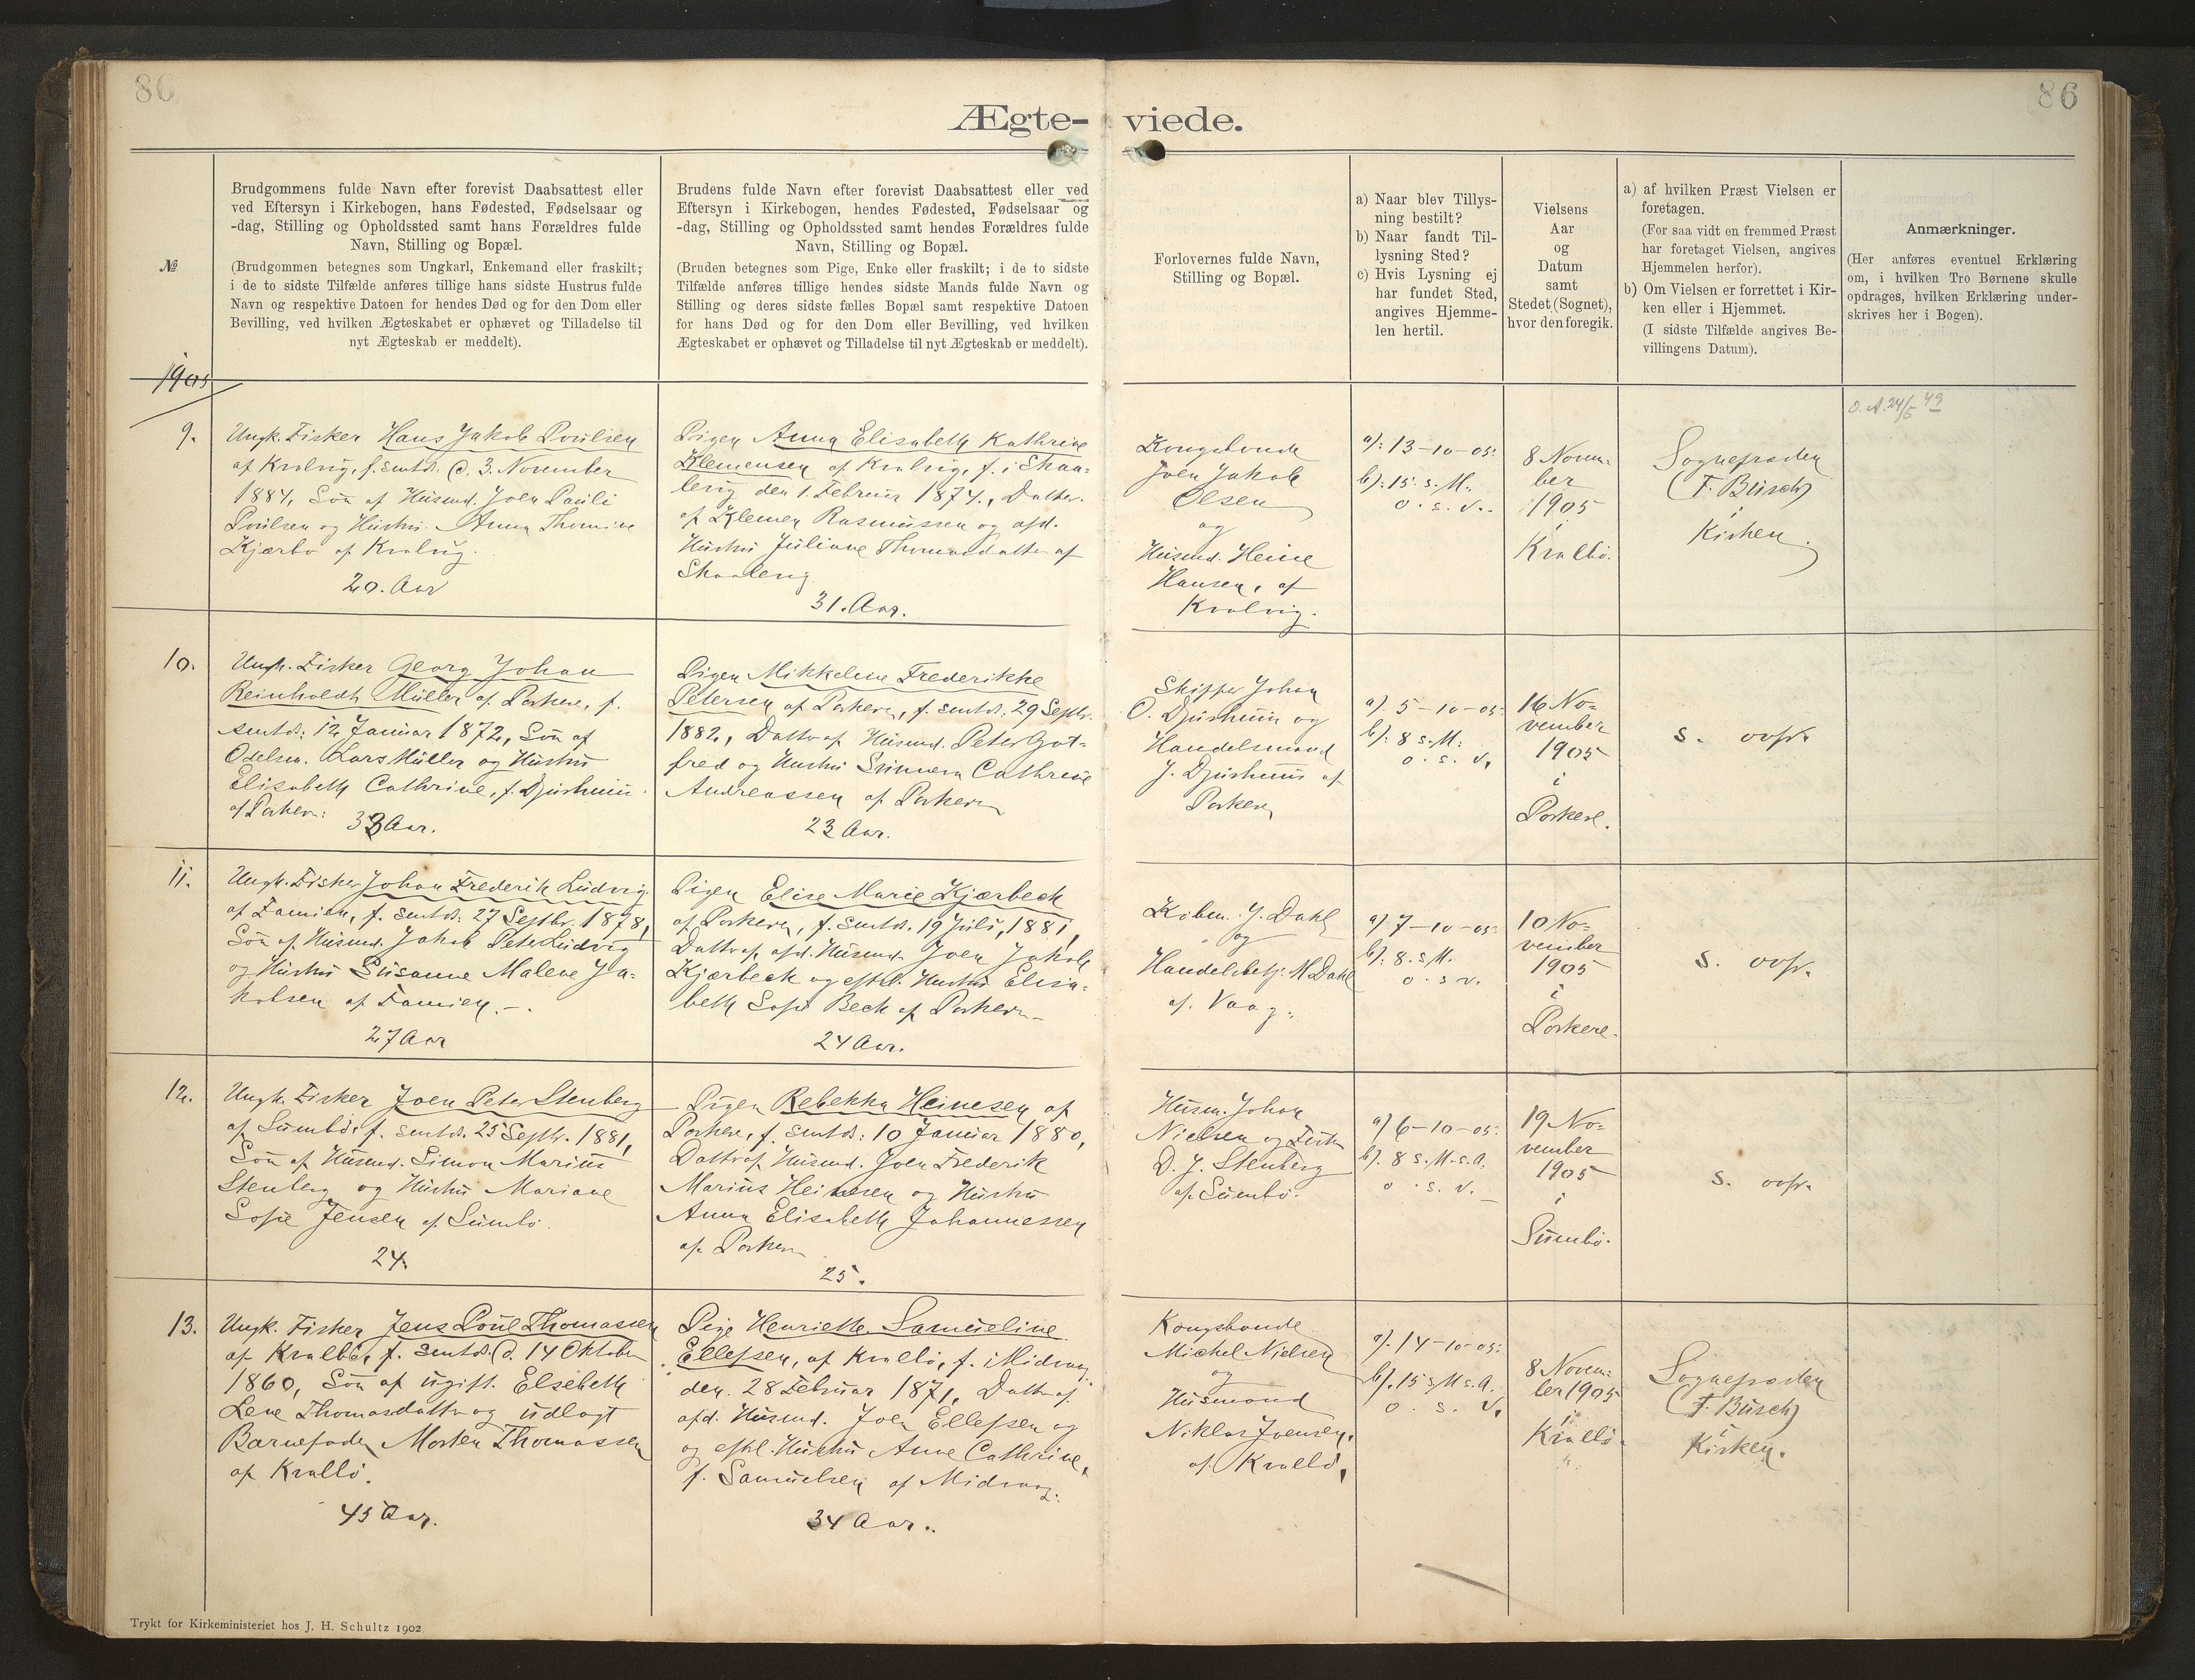 80
86
Ægte-
viede.
№
Brudgommens fulde Navn efter forevist Daabsattest eller
ved Eftersyn i Kirkebogen, hans Fødested, Fødselsaar og
-dag, Stilling og Opholdssted samt hans Forældres fulde
Navn, Stilling og Bopæl.
(Brudgommen betegnes som Ungkarl, Enkemand eller fraskilt;
i de to sidste Tilfælde anføres tillige hans sidste Hustrus fulde
Navn og respektive Datoen for hendes Død og for den Dom eller
Bevilling, ved hvilken Ægteskabet er ophævet og Tilladelse til
nyt Ægteskab er meddelt).
Brudens fulde Navn efter forevist Daabsattest eller ved
Eftersyn i Kirkebogen, hendes Fødested, Fødselsaar og
-dag, Stilling og Opholdssted samt hendes Forældres fulde
Navn, Stilling og Bopæl.
(Bruden betegnes som Pige, Enke eller fraskilt; i de to sidste
Tilfælde anføres tillige hendes sidste Mands fulde Navn og
Stilling og deres sidste fælles Bopæl samt respektive Datoen
for hans Død og for den Dom eller Bevilling, ved hvilken
Ægteskabet er ophævet og Tilladelse til nyt Ægteskab er meddelt).
Forlovernes fulde Navn,
Stilling og Bopæl.
a) Naar blev Tillys-
ning bestilt?
b) Naar fandt Til-
lysning Sted?
c) Hvis Lysning ej
har fundet Sted,
angives Hjemme-
len hertil.
Vielsens
Aar
og
Datum
samt
Stedet (Sognet),
hvor den foregik.
a) af hvilken Præst Vielsen er
foretagen.
(For saa vidt en fremmed Præst
har foretaget Vielsen, angives
Hjemmelen herfor).
b) Om Vielsen er forrettet i Kir-
ken eller i Hjemmet.
(I sidste Tilfælde angives Be-
villingens Datum).
Anmærkninger.
(Her anføres eventuel Erklæring
om, i hvilken Tro Børnene skulle
opdrages, hvilken Erklæring under-
skrives her i Bogen).
1905
9.
Ungk. Fisker Hans Jakob Poulsen
af Kvalvig, f. smtds. d. 3. November
1884, Søn af Husmd. Joen Pauli
Poulsen og Hustru Anna Thomine
Kjærbo af Kvalvig.
20. Aar
Pigen Anna Elisabeth Kathrine
Klemensen af Kvalvig, f. i Skaa-
levig den 1. Februar 1874., Datter
af Klemen Rasmussen og afd.
Hustru Juliane Thomasdatter af
Skaalevig.
31. Aar.
Kongsbonde
Joen Jakob
Olsen
og
Husmd. Heine
Hansen, af
Kvalvig.
a): 13-10-05.
b): 15. s. M.
o. s. v.
8 Novem-
ber
1905
i
Kvalbø.
Sognepræsten
(F. Busch)
i
Kirken.
D.A. 24/5 49
10.
Ungk. Fisker Georg Johan
Reinholdt Müller af Porkere, f.
smtds: 12 Januar 1872, Søn af
Odelsm. Lars Müller og Hustru
Elisabeth Cathrine, f. Djurhuus
af Porkere:
33 Aar.
Pigen Mikkeline Frederikke
Petersen af Porkere, f. smtds: 29 Septbr.
1882, Datter af Husmd. Peter Got-
fred og Hustru Sunneva Cathrine
Andreassen af Porkere
23 Aar.
Skipper Johan
O. Djurhuus og
Handelsmand
J. Djurhuus af
Porkere
a). 5-10-05
b): 8 s. M:
o. s. v.
16 No-
vember
1905
i
Porkere.
s. ovfr.
11.
Ungk. Fisker Johan Frederik Ludvig
af Famien, f. smtds: 27 Septbr. 1878,
Søn af Husmd. Jakob Peter Ludvig
og Hustru Susanne Malene Ja-
kobsen af Famien.
27 Aar
Pigen Elise Marie Kjærbeck
af Porkere, f. smtds. 19 Juli, 1881,
Datter af afd. Husmd. Joen Jakob
Kjærbeck og eftl. Hustru Elisa-
beth Sofie Beck af Porkere
24 Aar.
Købm. J. Dahl
og
Handelsbetj. M Dahl
af. Vaag.
a) 7-10-05
b): 8. s. M.
o. s. v.
10 No-
vember
1905
i
Porkere.
s. ovfr.
12.
Ungk. Fisker Joen Peter Stenberg
af Sumbø, f. smtds. 25 Septbr. 1881,
Søn af Husmd. Simon Marius
Stenberg og Hustru Mariane
Sofie Jensen af Sumbø.
24.
Pigen Rebekka Heinesen af
Porkere, f. smtds: 10 Januar 1880,
Datter af Husmd. Joen Frederik
Marius Heinesen og Hustru
Anna Elisabeth Johannessen
af Porkere
25.
Husm. Johan
Nielsen og Fisker
D. J. Stenberg
af Sumbø.
a) 6-10-05
b). 8 s. M. s. A.
o. s. v.
19 No-
vember
1905
i
Sumbø.
s. ovfr.
13.
Ungk. Fisker Jens Poul Thomassen
af Kvalbø, f. smtds. d. 14 Oktober
1860, Søn af ugift. Elsebeth
Lene Thomasdatter og udlagt
Barnefader Morten Thomassen
af Kvalbø.
45 Aar.
Pige Henriette Samueline
Ellefsen, af Kvalbø, f. i Midvaag
den. 28 Februar 1871, Datter af
afd. Husmd. Joen Ellefsen og
og eftl. Hustru Anne Cathrine,
f. Samuelsen af Midvaag.
34 Aar.
Kongsbonde
Michel Nielsen
og
Husmand
Niklas Joensen,
af. Kvalbø,
a). 14-10-05
b). 15 s M s. A.
o. s. v.
8 Novem-
ber 1905
i
Kvalbø.
Sognepræsten
(F. Busch)
i
Kirken.
Trykt for Kirkeministeriet hos J. H. Schultz 1902